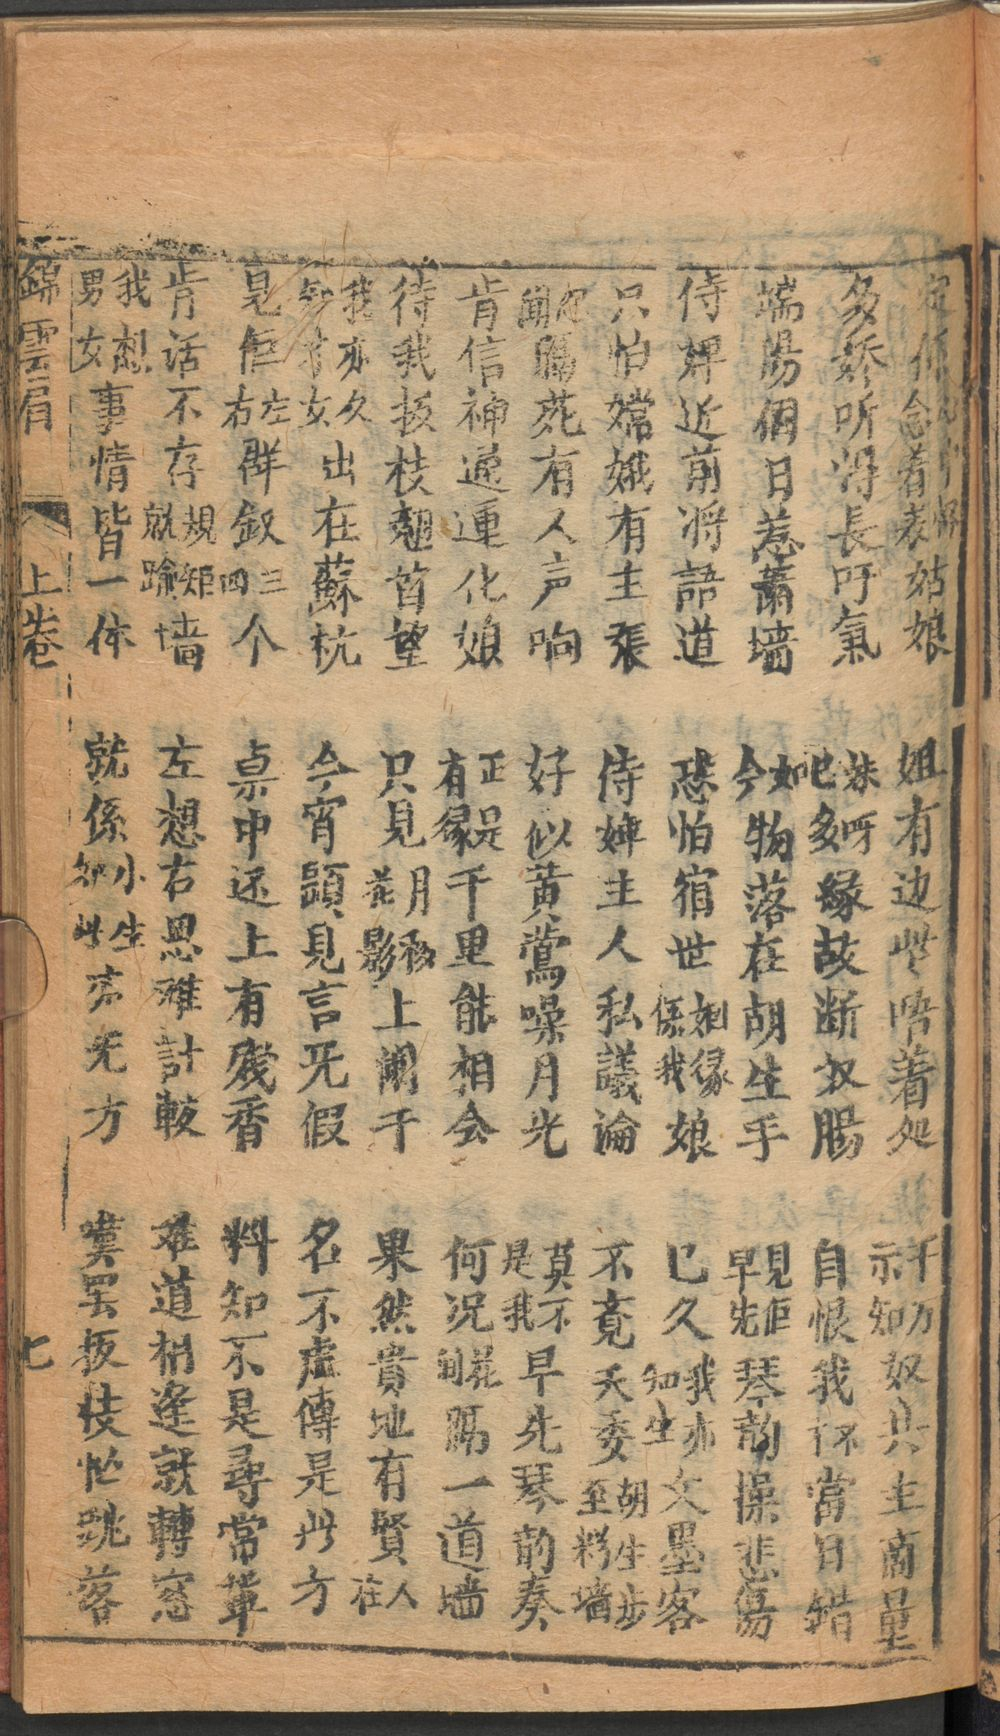 定係念着表姑娘　姐有边些唔着处　千万奴共主商量
多娇听淂長吁氣　妹呀吧多緣故断奴腸　自恨我怀當日錯
端陽個日惹蕭墻　如今物落在胡生手　見佢早先琴韵操悲傷
侍婢近前将語道　恐怕宿世姻缘係我娘　已久我亦知生文墨客
只怕嫦娥有主張　侍婢主人私議論　不竟天委胡生步至粉墙
聞隔苑有人声响　好似黄鶯噪月光　莫不是我早先琴韵奏
肯信神通運化娘　正是有緣千里能相会　何况花間隔一道墙
待我扳枝翹首望　只見月移花影上闌干　果然貴地有賢人在
我亦久知才女出在蘇杭　今宵題見言无假　名不虚傳是此方
見佢左右群釵三四个　桌中还上有残香　料知不是尋常輩
肯话不存規矩就踰墙　左想右思难計較　难道相逢就轉窓
我想男女事情皆一体　就係小生如此亦无方　奠罢扳枝忙跳落
錦雲肩　上卷　七